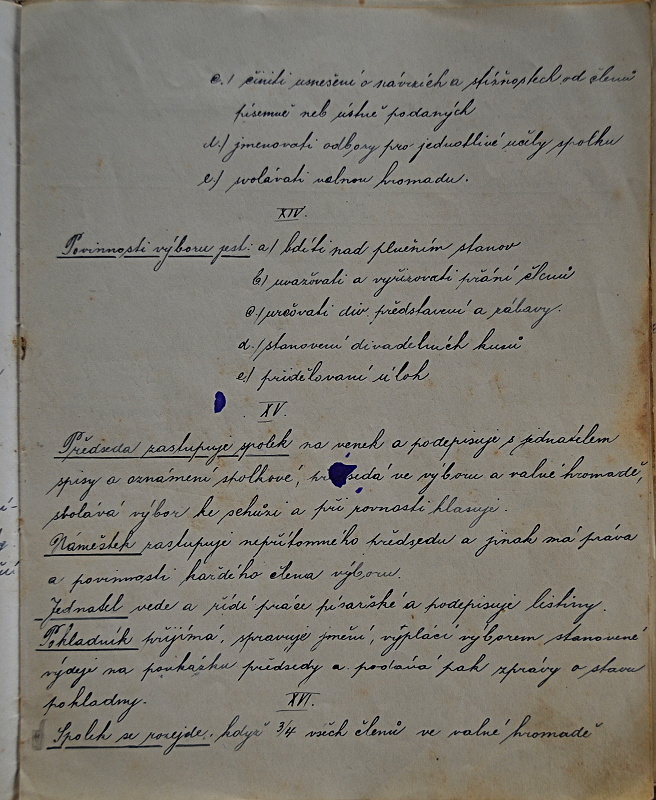 c.) činiti usnešení o návrzích a stížnostech od členů
písemně neb ústně podaných
d.) jmenovati odbory pro jednotlivé účely spolku
e.) svolávati valnou hromadu.
XIV.
Povinnosti výboru jest: a) bdíti nad plněním stanov
b) uvažovati a vyřizovati přání členů
c.) určovati div. představení a zábavy.
d.) stanovení divadelních kusů
e.) přidělovaní úloh
XV.
Předseda zastupuje spolek na venek a podepisuje s jednatelem
spisy a oznámení spolkové, předsedá ve výboru a valné hromadě,
svolává výbor ke schůzi a při rovnosti hlasuje.
Náměstek zastupuje nepřítomného předsedu a jinak má práva
a povinnosti každého člena výboru.
Jednatel vede a řídí práce písařské a podepisuje listiny.
Pokladník přijímá, spravuje jmění, vyplácí výborem stanovené
výdeje na poukázku předsedy a podává pak zprávy o stavu
pokladny.
XVI.
Spolek se rozejde, když 3/4 všech členů ve valné hromadě